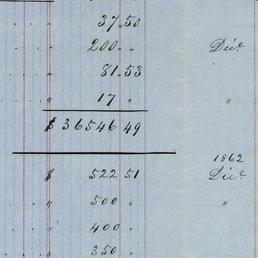 37.50
200 " Dec.
81.53
17 "
$ 36546 49
1862
$ 522 51 Dec.
500 "
400 "
350 "